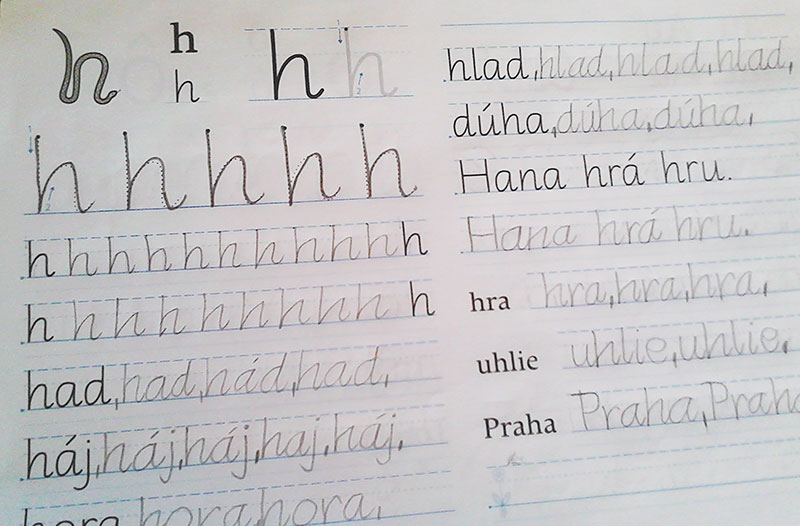 h
h
h
h h
h h h h h
h h h h h h h h h h h
h h h h h h h h h h
had, had, hád, had,
háj, háj, háj, haj, háj,
hora hora hora,
hlad, hlad, hlad, hlad,
dúha, dúha, dúha,
Hana hrá hru.
Hana hrá hru.
hra hra, hra, hra,
uhlie uhlie, uhlie,
Praha Praha, Praha